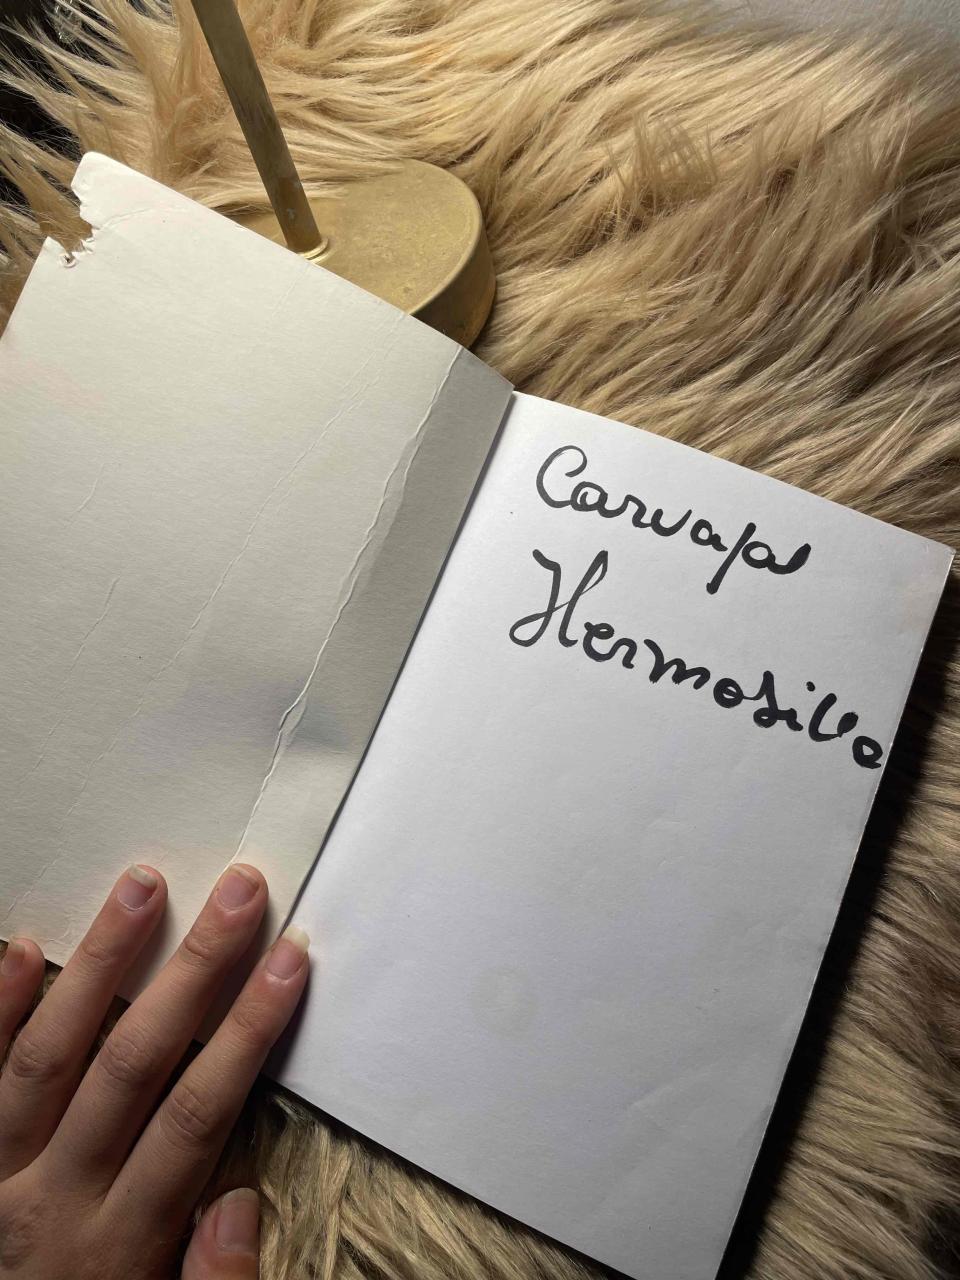 Carvajal
Hermosilla